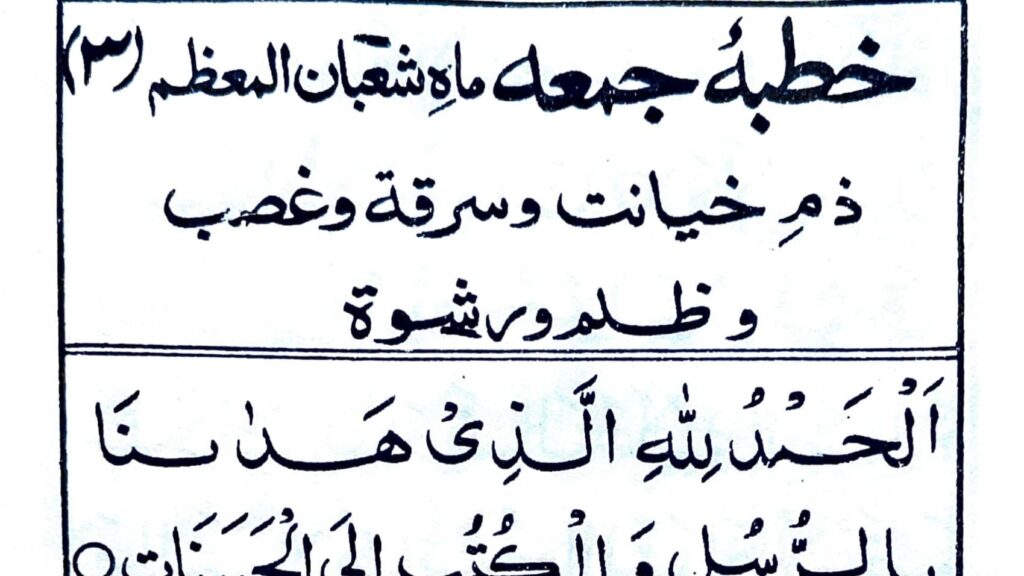 خطبۂ جمعہ ماہِ شعبان المعظم (۳)
ذمِ خیانت وسرقة وغصب
و ظلم ورشوة
اَلْحَمْدُ لِلّٰهِ الَّذِیْ هَدٰىنَا
بِالرُّسُلِ وَالْكُتُبِ اِلَی الْحَسَنَاتِ○